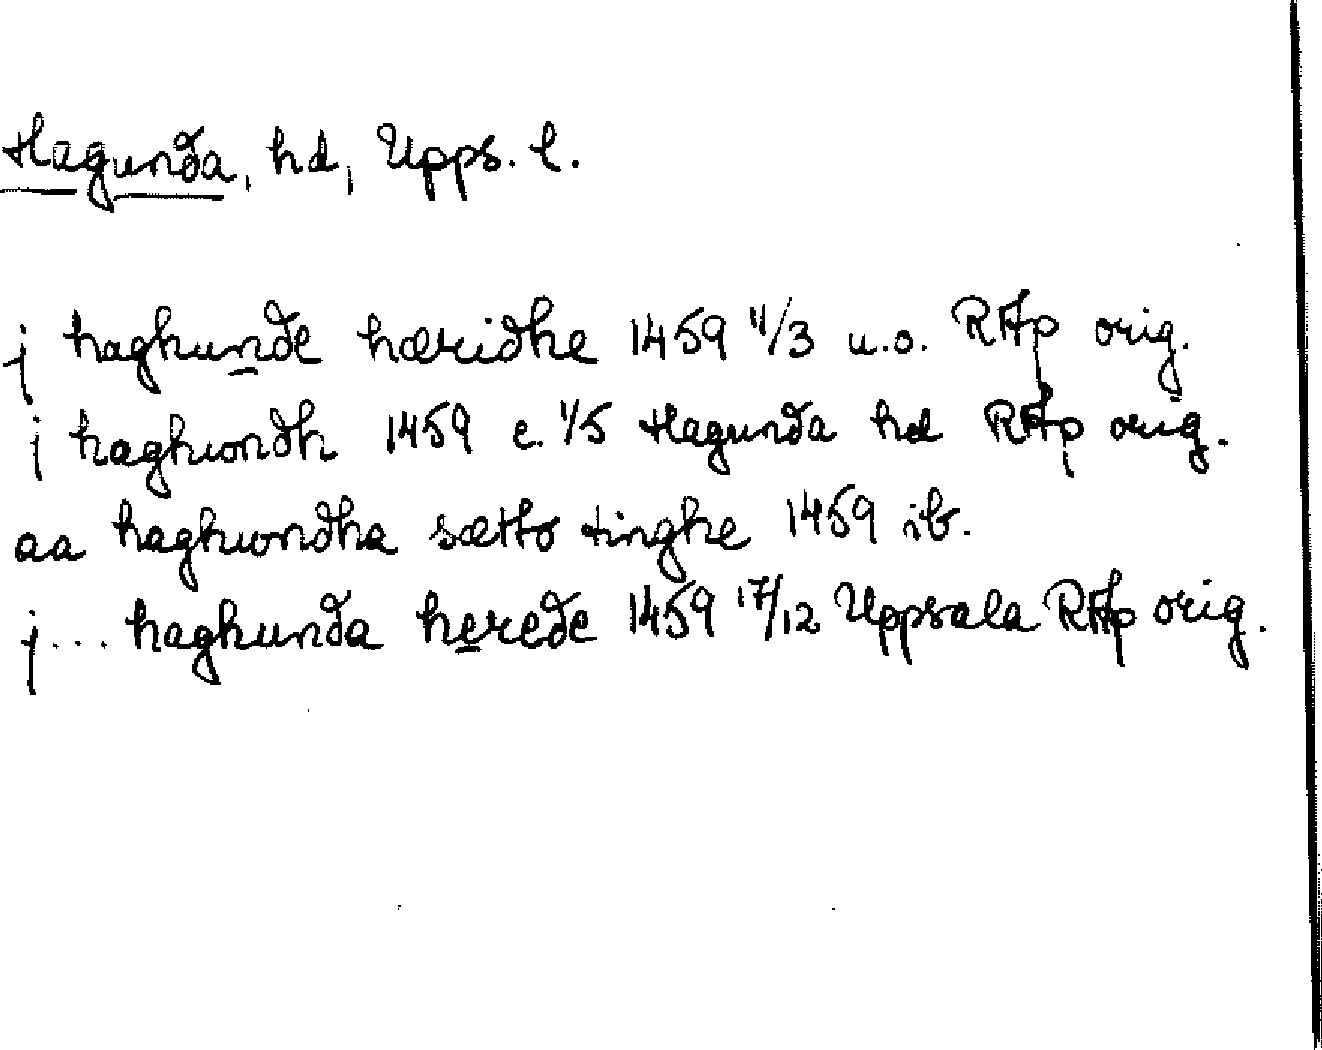 Hagunda, hd, Upps. l.
j haghunde hæridhe 1459 11/3 u.o. RAp orig.
j haghwndh 1459 e. 1/5 Hagunda hd RAp orig.
aa haghwndha sætto tinghe 1459 ib.
j... haghunda herede 1459 17/12 Uppsala RAp orig.